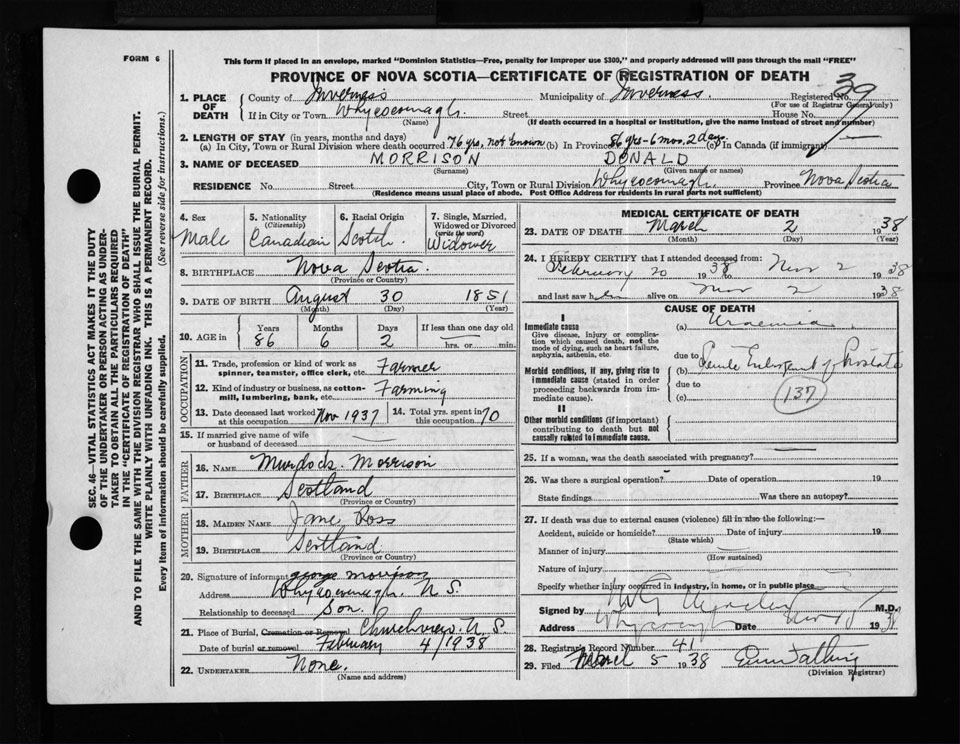 FORM 6
This form if placed in an envelope, marked "Dominion Statistics—Free, penalty for improper use $300," and properly addressed will pass through the mail "FREE"
PROVINCE OF NOVA SCOTIA—CERTIFICATE OF REGISTRATION OF DEATH
1. PLACE OF DEATH
County of Inverness Municipality of Inverness. Registered No. 39
(For use of Registrar General only)
If in City or Town Whycocomagh. Street House No.
(Name) (If death occurred in a hospital or institution, give the name instead of street and number)
2. LENGTH OF STAY (in years, months and days)
(a) In City, Town or Rural Division where death occurred 76 yrs, not known (b) In Province 86 yrs-6 mos, 2 days (c) In Canada (if immigrant)
3. NAME OF DECEASED MORRISON DONALD
(Surname) (Given name or names)
RESIDENCE No. Street City, Town or Rural Division Whycocomagh Province Nova Scotia
(Residence means usual place of abode. Post Office Address for residents in rural parts not sufficient)
4. Sex Male
5. Nationality (Citizenship) Canadian
6. Racial Origin Scotch.
7. Single, Married, Widowed or Divorced (write the word) Widower
8. BIRTHPLACE Nova Scotia.
(Province or Country)
9. DATE OF BIRTH August 30 1851
(Month) (Day) (Year)
10. AGE in Years 86 Months 6 Days 2 If less than one day old hrs. or min.
OCCUPATION
11. Trade, profession or kind of work as spinner, teamster, office clerk, etc. Farmer
12. Kind of industry or business, as cotton-mill, lumbering, bank, etc. Farming
13. Date deceased last worked at this occupation Nov 1937
14. Total yrs. spent in this occupation 70
15. If married give name of wife or husband of deceased
FATHER
16. NAME Murdock Morrison
17. BIRTHPLACE Scotland
(Province or Country)
MOTHER
18. MAIDEN NAME Jane Ross
19. BIRTHPLACE Scotland
(Province or Country)
20. Signature of informant George Morrison
Address Whycocomagh. N S.
Relationship to deceased Son.
21. Place of Burial, Cremation or Removal Churchview. N. S.
Date of burial or removal February 4/1938
22. UNDERTAKER None.
(Name and address)
MEDICAL CERTIFICATE OF DEATH
23. DATE OF DEATH March 2 1938
(Month) (Day) (Year)
24. I HEREBY CERTIFY that I attended deceased from:
February 20 1938 to Mar 2 1938
and last saw h alive on Mar 2 1938
CAUSE OF DEATH
I
Immediate cause
Give disease, injury or complication which caused death, not the mode of dying, such as heart failure, asphyxia, asthenia, etc.
(a) Uraemia
due to
Morbid conditions, if any, giving rise to immediate cause (stated in order proceeding backwards from immediate cause).
(b) Senile Enlargement of Prostate
due to
(c) 137
II
Other morbid conditions (if important) contributing to death but not causally related to immediate cause.
25. If a woman, was the death associated with pregnancy?
26. Was there a surgical operation? Date of operation 19
State findings Was there an autopsy?
27. If death was due to external causes (violence) fill in also the following:—
Accident, suicide or homicide? Date of injury 19
(State which)
Manner of injury
(How sustained)
Nature of injury
Specify whether injury occurred in industry, in home, or in public place
Signed by M.D.
Address Whycocomagh Date 19
28. Registrar's Record Number 41
29. Filed March 5 1938
(Division Registrar)
SEC. 46—VITAL STATISTICS ACT MAKES IT THE DUTY
OF THE UNDERTAKER OR PERSON ACTING AS UNDER-
TAKER TO OBTAIN ALL THE PARTICULARS REQUIRED
IN THE "CERTIFICATE OF REGISTRATION OF DEATH"
AND TO FILE THE SAME WITH THE DIVISION REGISTRAR WHO SHALL ISSUE THE BURIAL PERMIT.
WRITE PLAINLY WITH UNFADING INK. THIS IS A PERMANENT RECORD.
Every item of information should be carefully supplied. (See reverse side for instructions.)